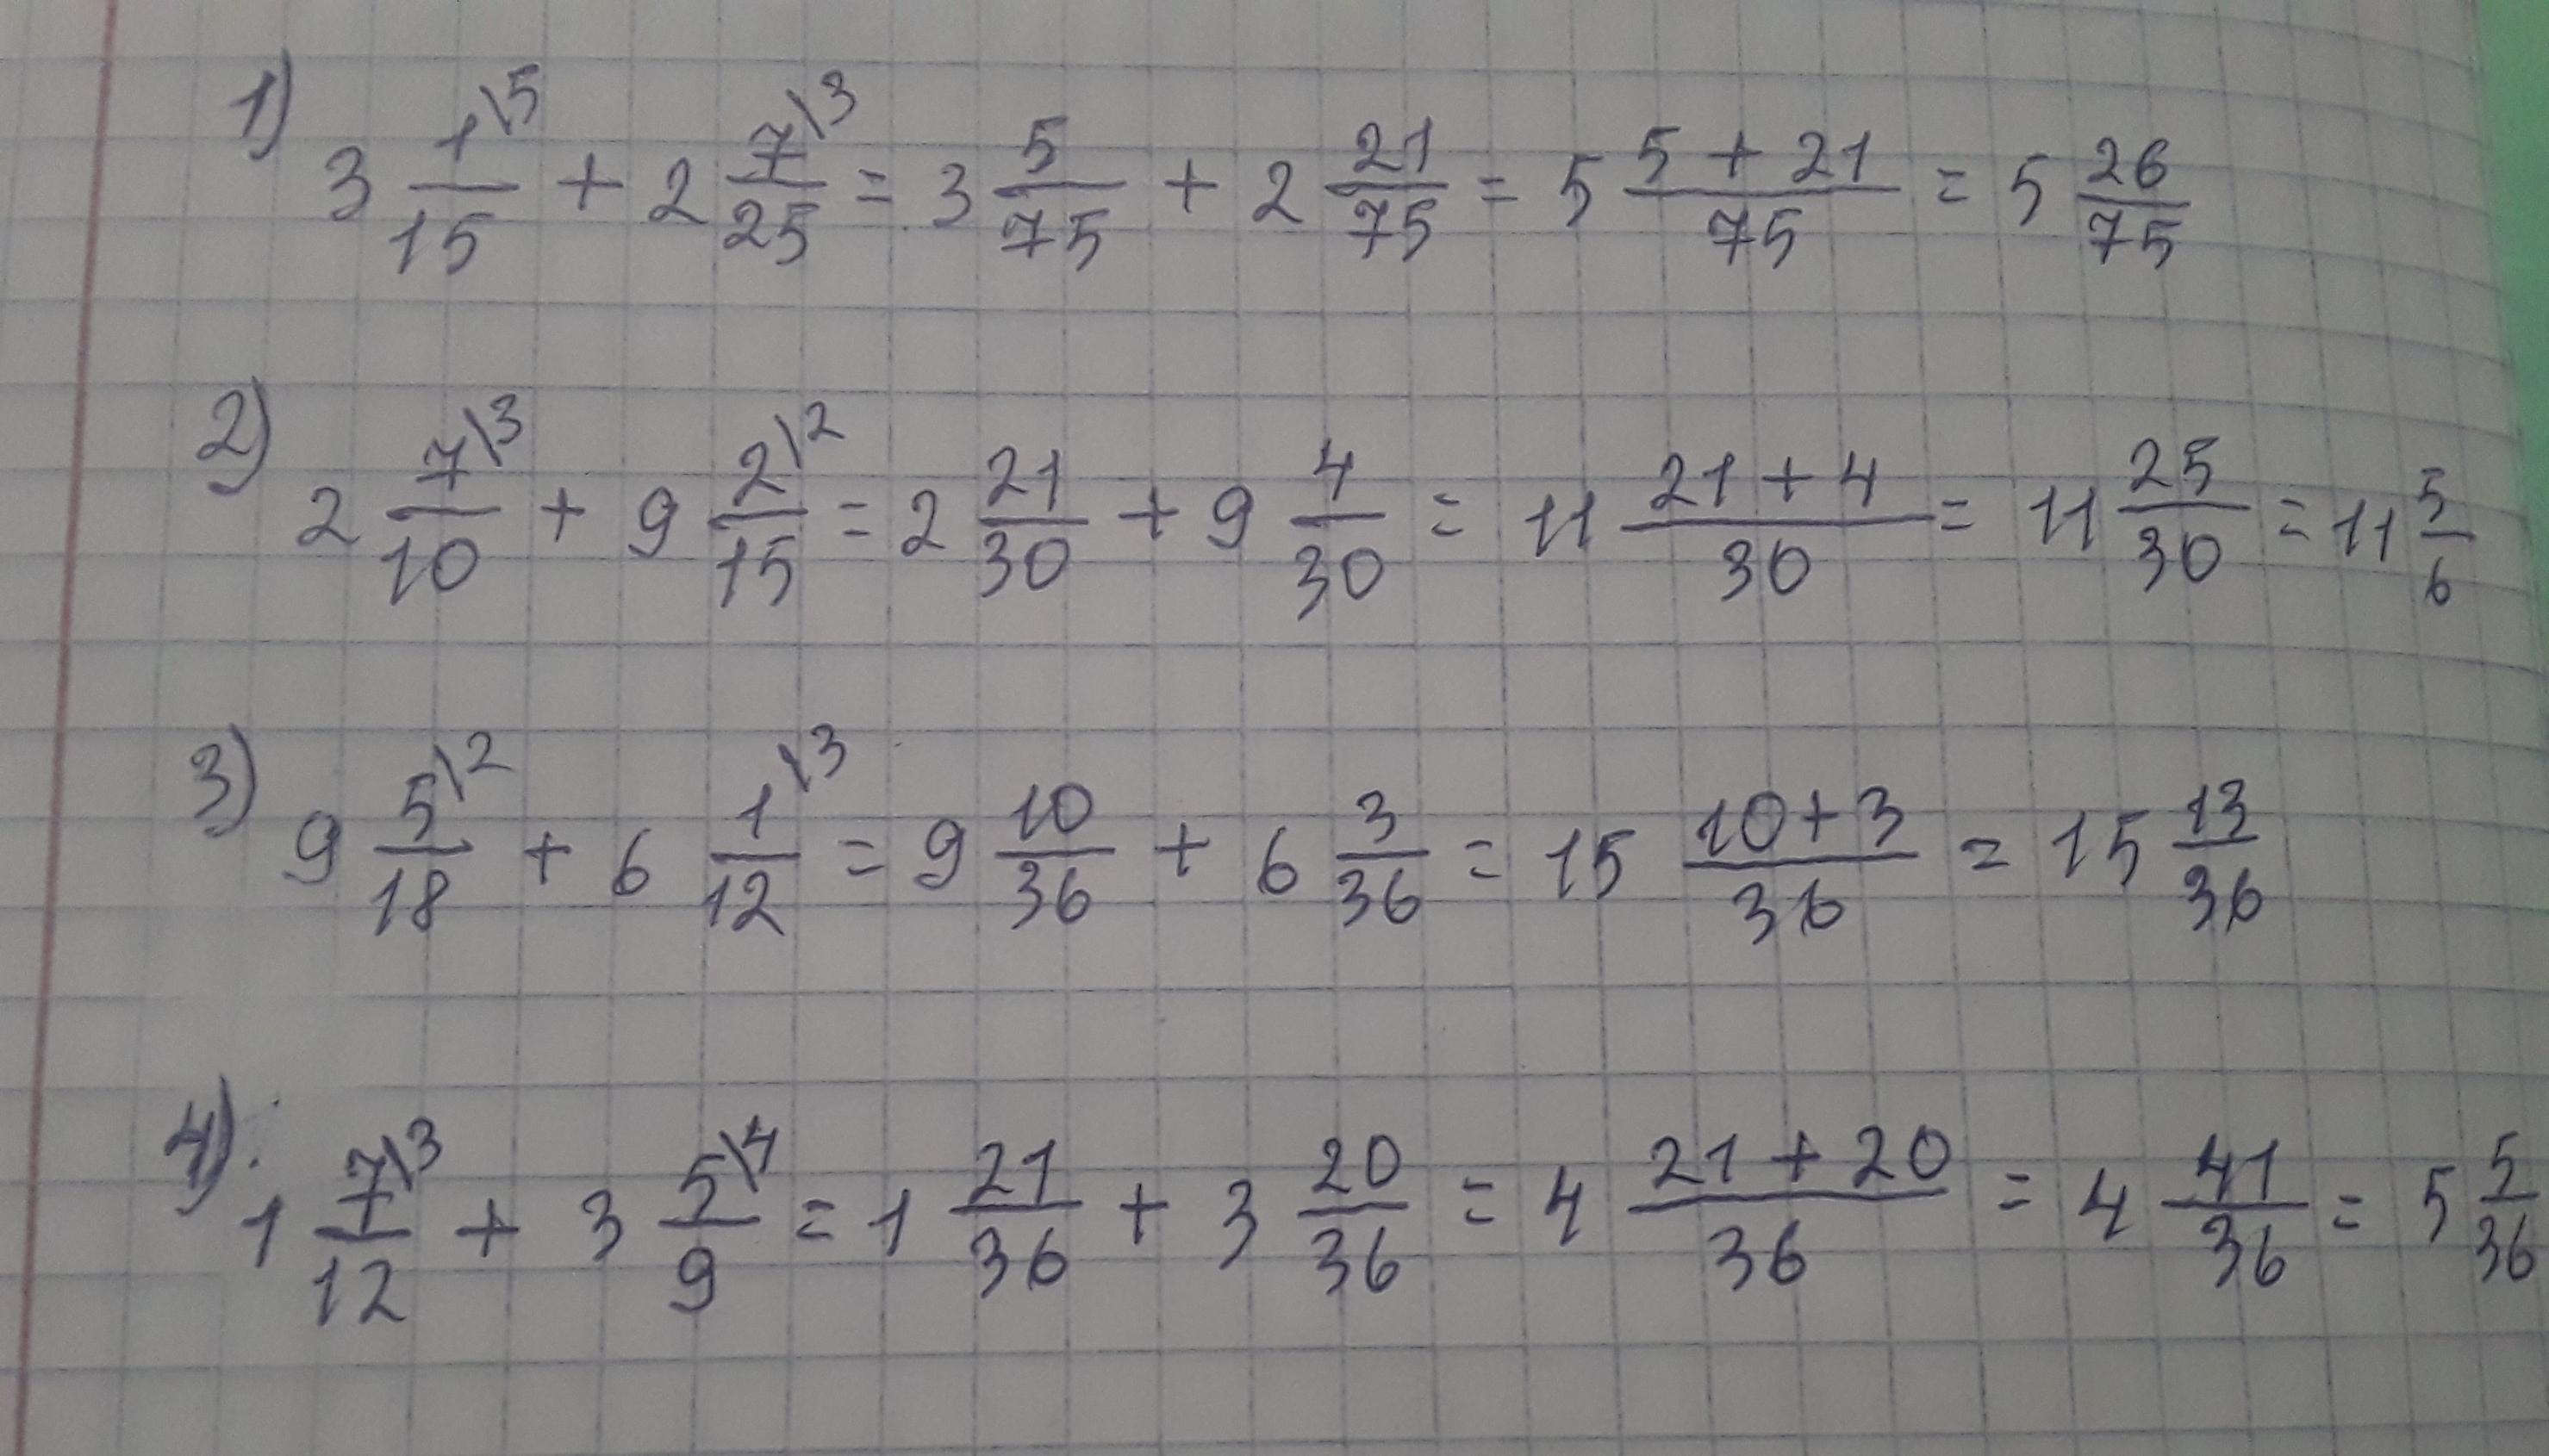 1) 3 1\5/15 + 2 7\3/25 = 3 5/75 + 2 21/75 = 5 5+21/75 = 5 26/75
2) 2 7\3/10 + 9 2\2/15 = 2 21/30 + 9 4/30 = 11 21+4/30 = 11 25/30 = 11 5/6
3) 9 5\2/18 + 6 1\3/12 = 9 10/36 + 6 3/36 = 15 10+3/36 = 15 13/36
4) 1 7\3/12 + 3 5\4/9 = 1 21/36 + 3 20/36 = 4 21+20/36 = 4 41/36 = 5 5/36